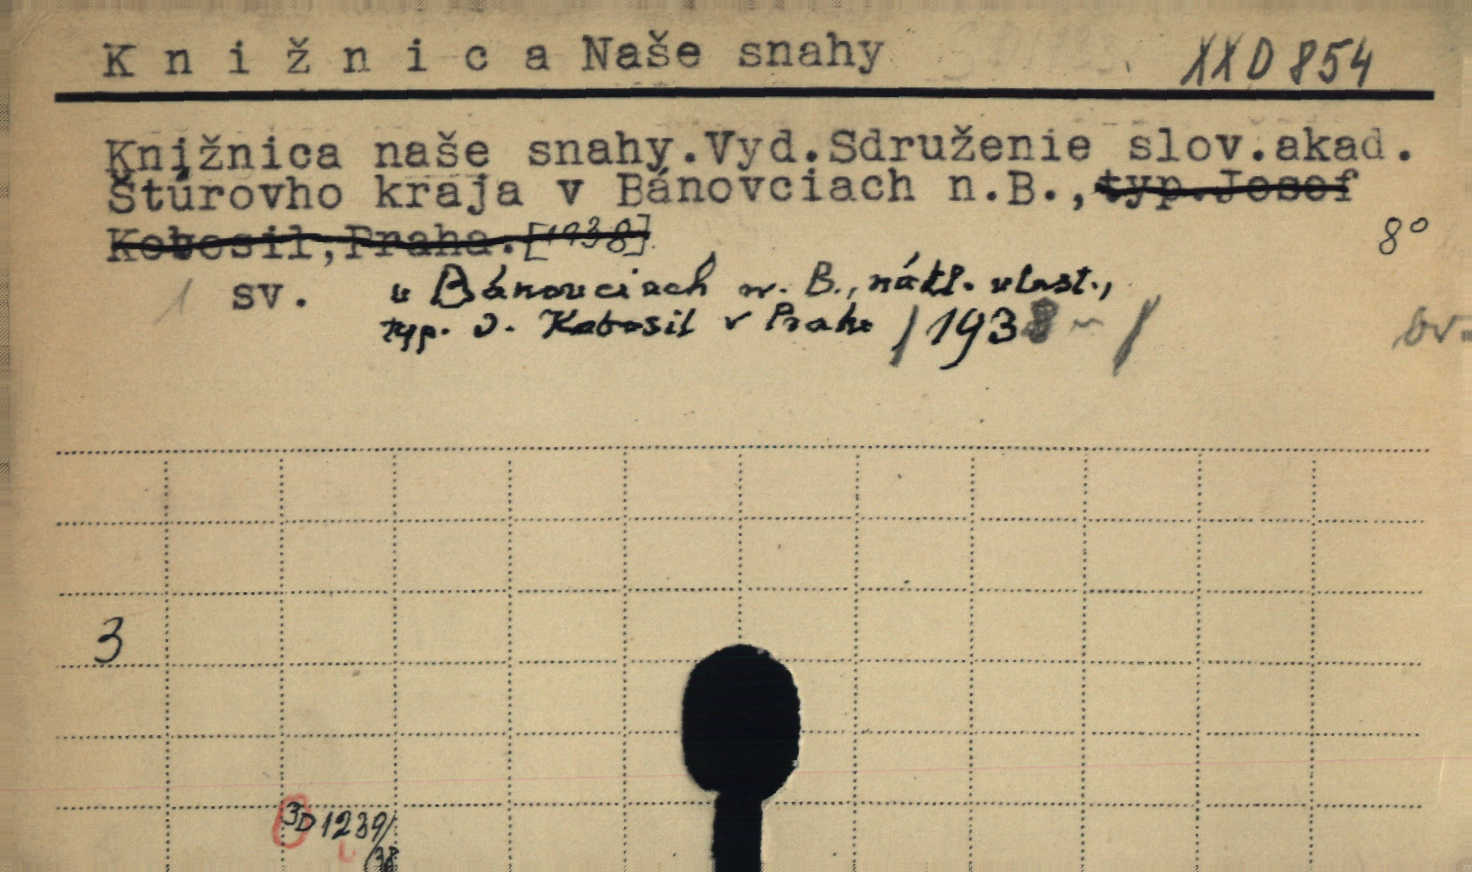 K n i ž n i c a Naše snahy XXD854
Knižnica naše snahy.Vyd.Sdruženie slov.akad.
Štúrovho kraja v Bánovciach n.B.,typ.Josef
Kobosil,Praha.[1938] 8°
1 sv. v Bánovciach n. B., nákl. vlast.,
typ. J. Kobosil v Praze /1938 - /
3
3D1239/
/38